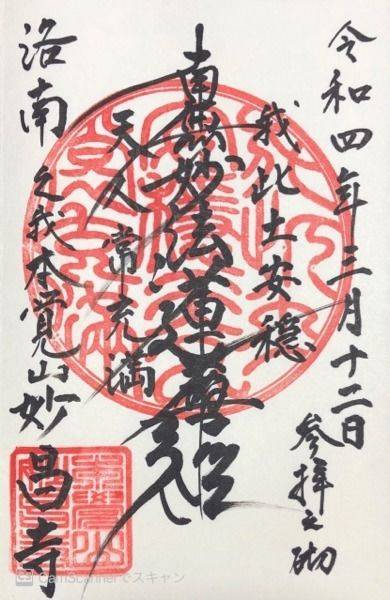 令和四年三月十二日
参拝之砌
我此土安穏
南無妙法蓮華経
天人常充満
洛南之我本覚山妙昌寺
CamScannerでスキャン